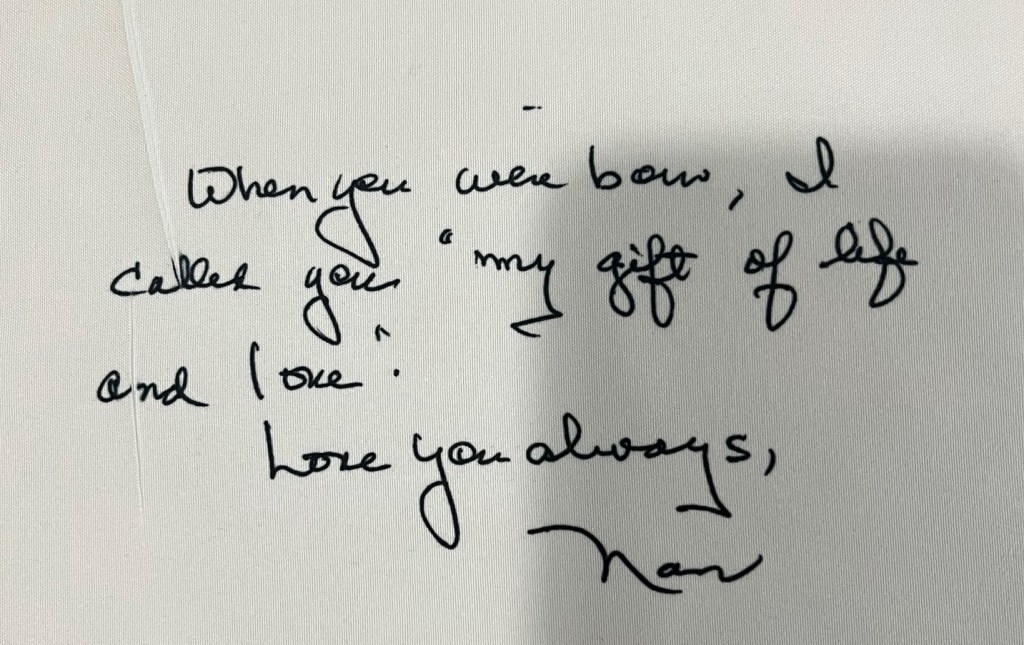 When you were born, I
called you "my gift of life
and love".
Love you always,
Nan